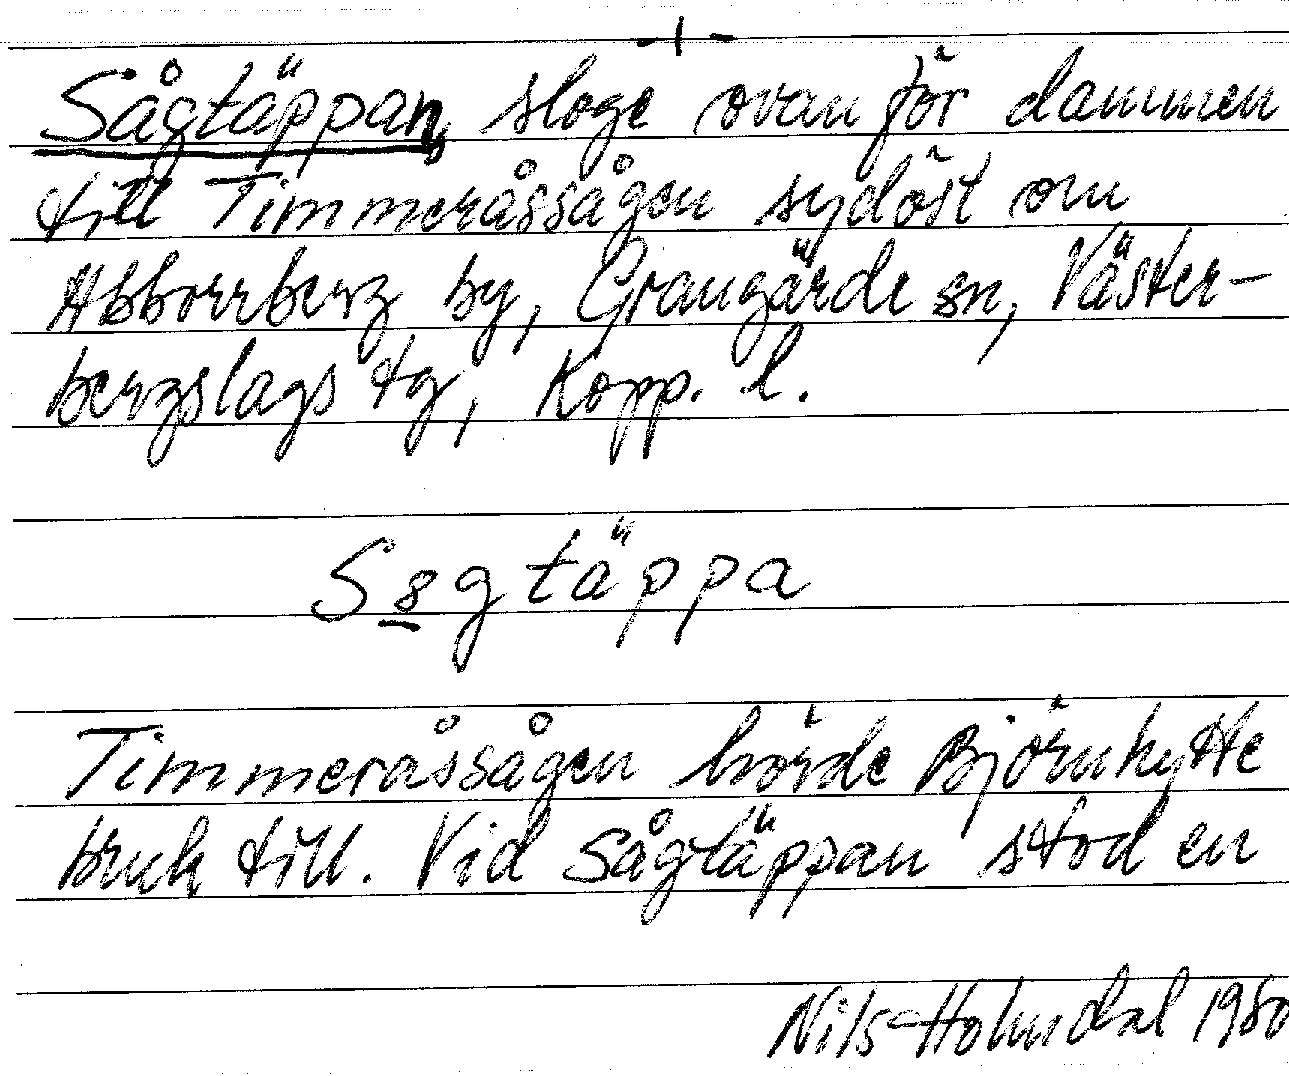 -1-
Sågtäppan, sloge ovanför dammen
till Timmeråssågen sydöst om
Abborrberg by, Grangärde sn, Väster-
bergslags tg, Kopp. l.
Ssgtäppa
Timmeråssågen hörde Björnhytte
bruk till. Vid Sågtäppan stod en
Nils Holmdal 1980